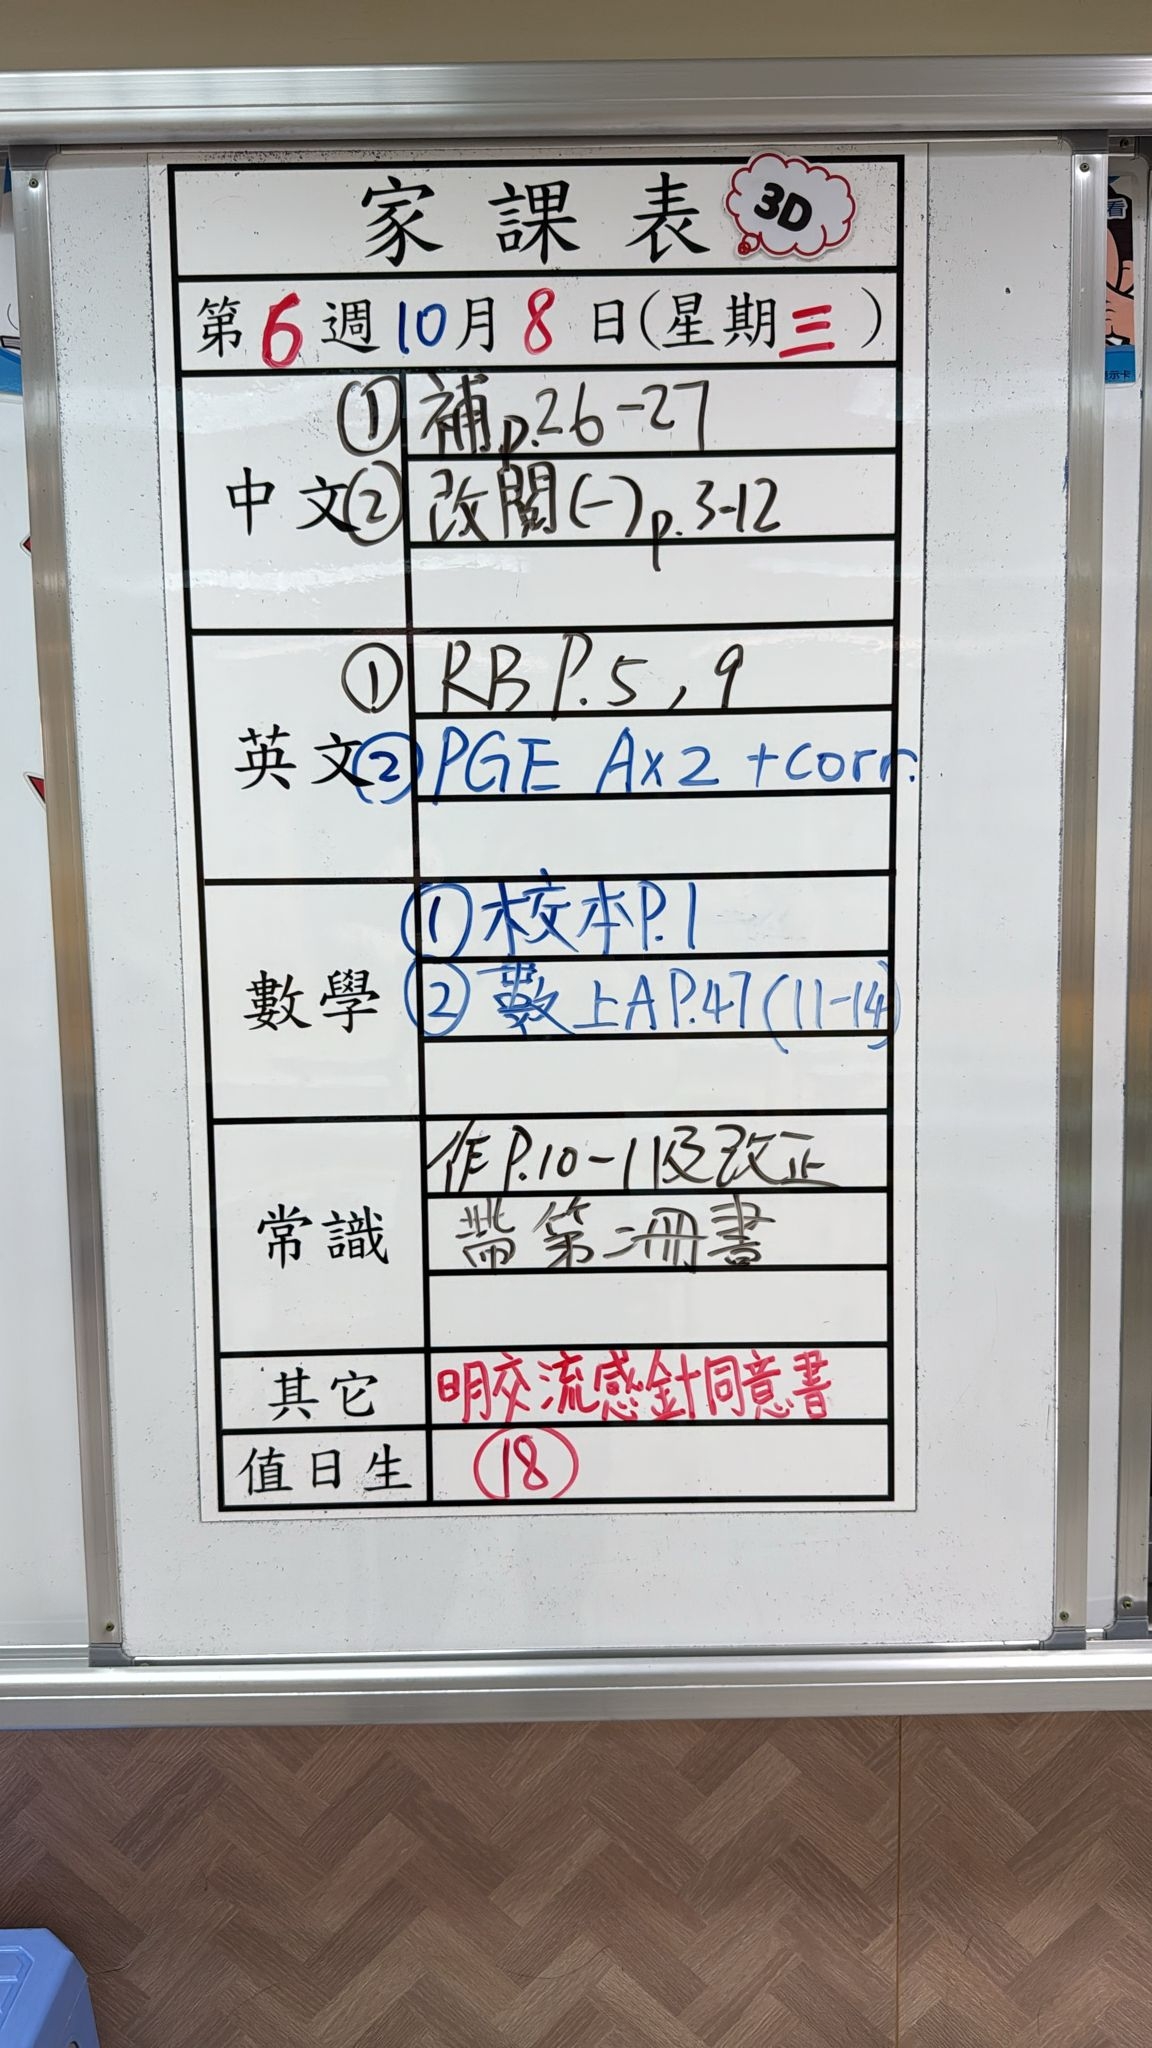 家課表 3D
第6週10月8日(星期三)
中文
① 補p.26-27
② 改閱(一)p.3-12
英文
① RB P.5,9
② PGE A×2 +corr.
數學
① 校本P.1
② 數上A P.47(11-14)
常識
作P.10-11及改正
帶第二冊書
其它 明交流感針同意書
值日生 ⑱
看
示卡